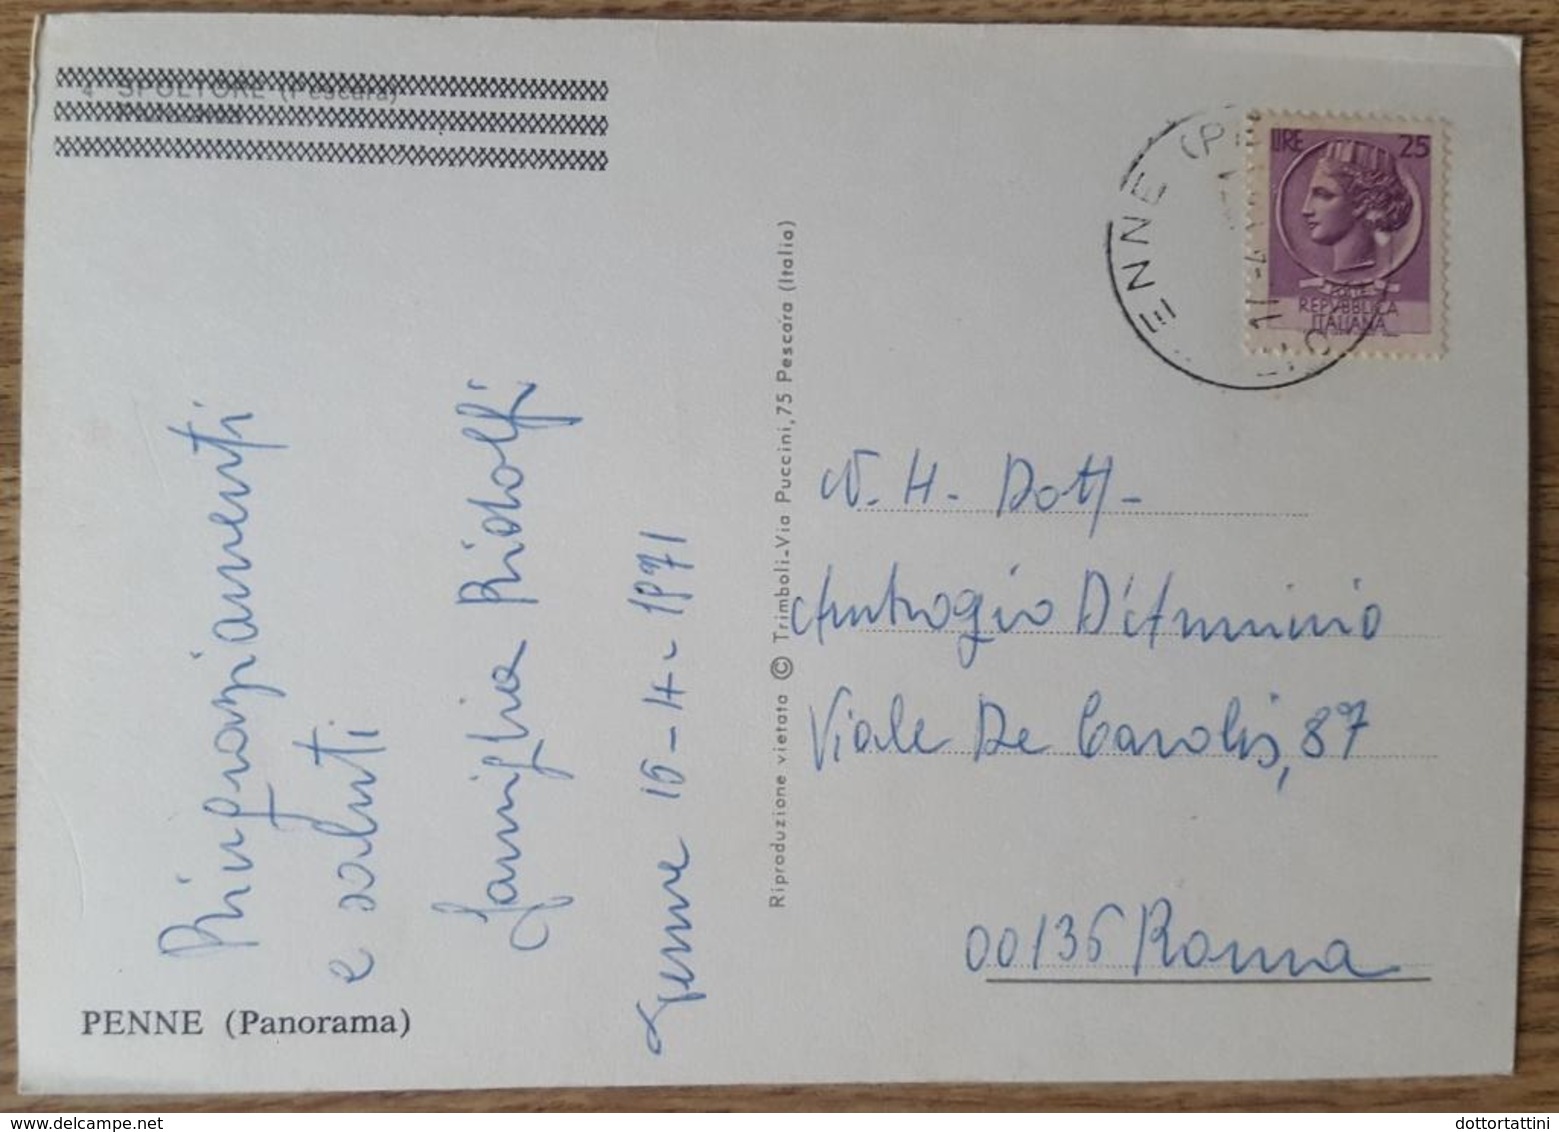 4 SPOLTORE (Pescara)
Ringraziamenti
e saluti
Famiglia Ridolfi
Penne 16-4-1971
PENNE (Panorama)
Riproduzione vietata © Trimboli-Via Puccini,75 Pescara (Italia)
PENNE (P
LIRE 25
POSTE
REPVBBLICA
ITALIANA
N. H. Dott-
Ambrogio D'Arminio
Viale De Carolis, 87
00136 Roma
dottortattini